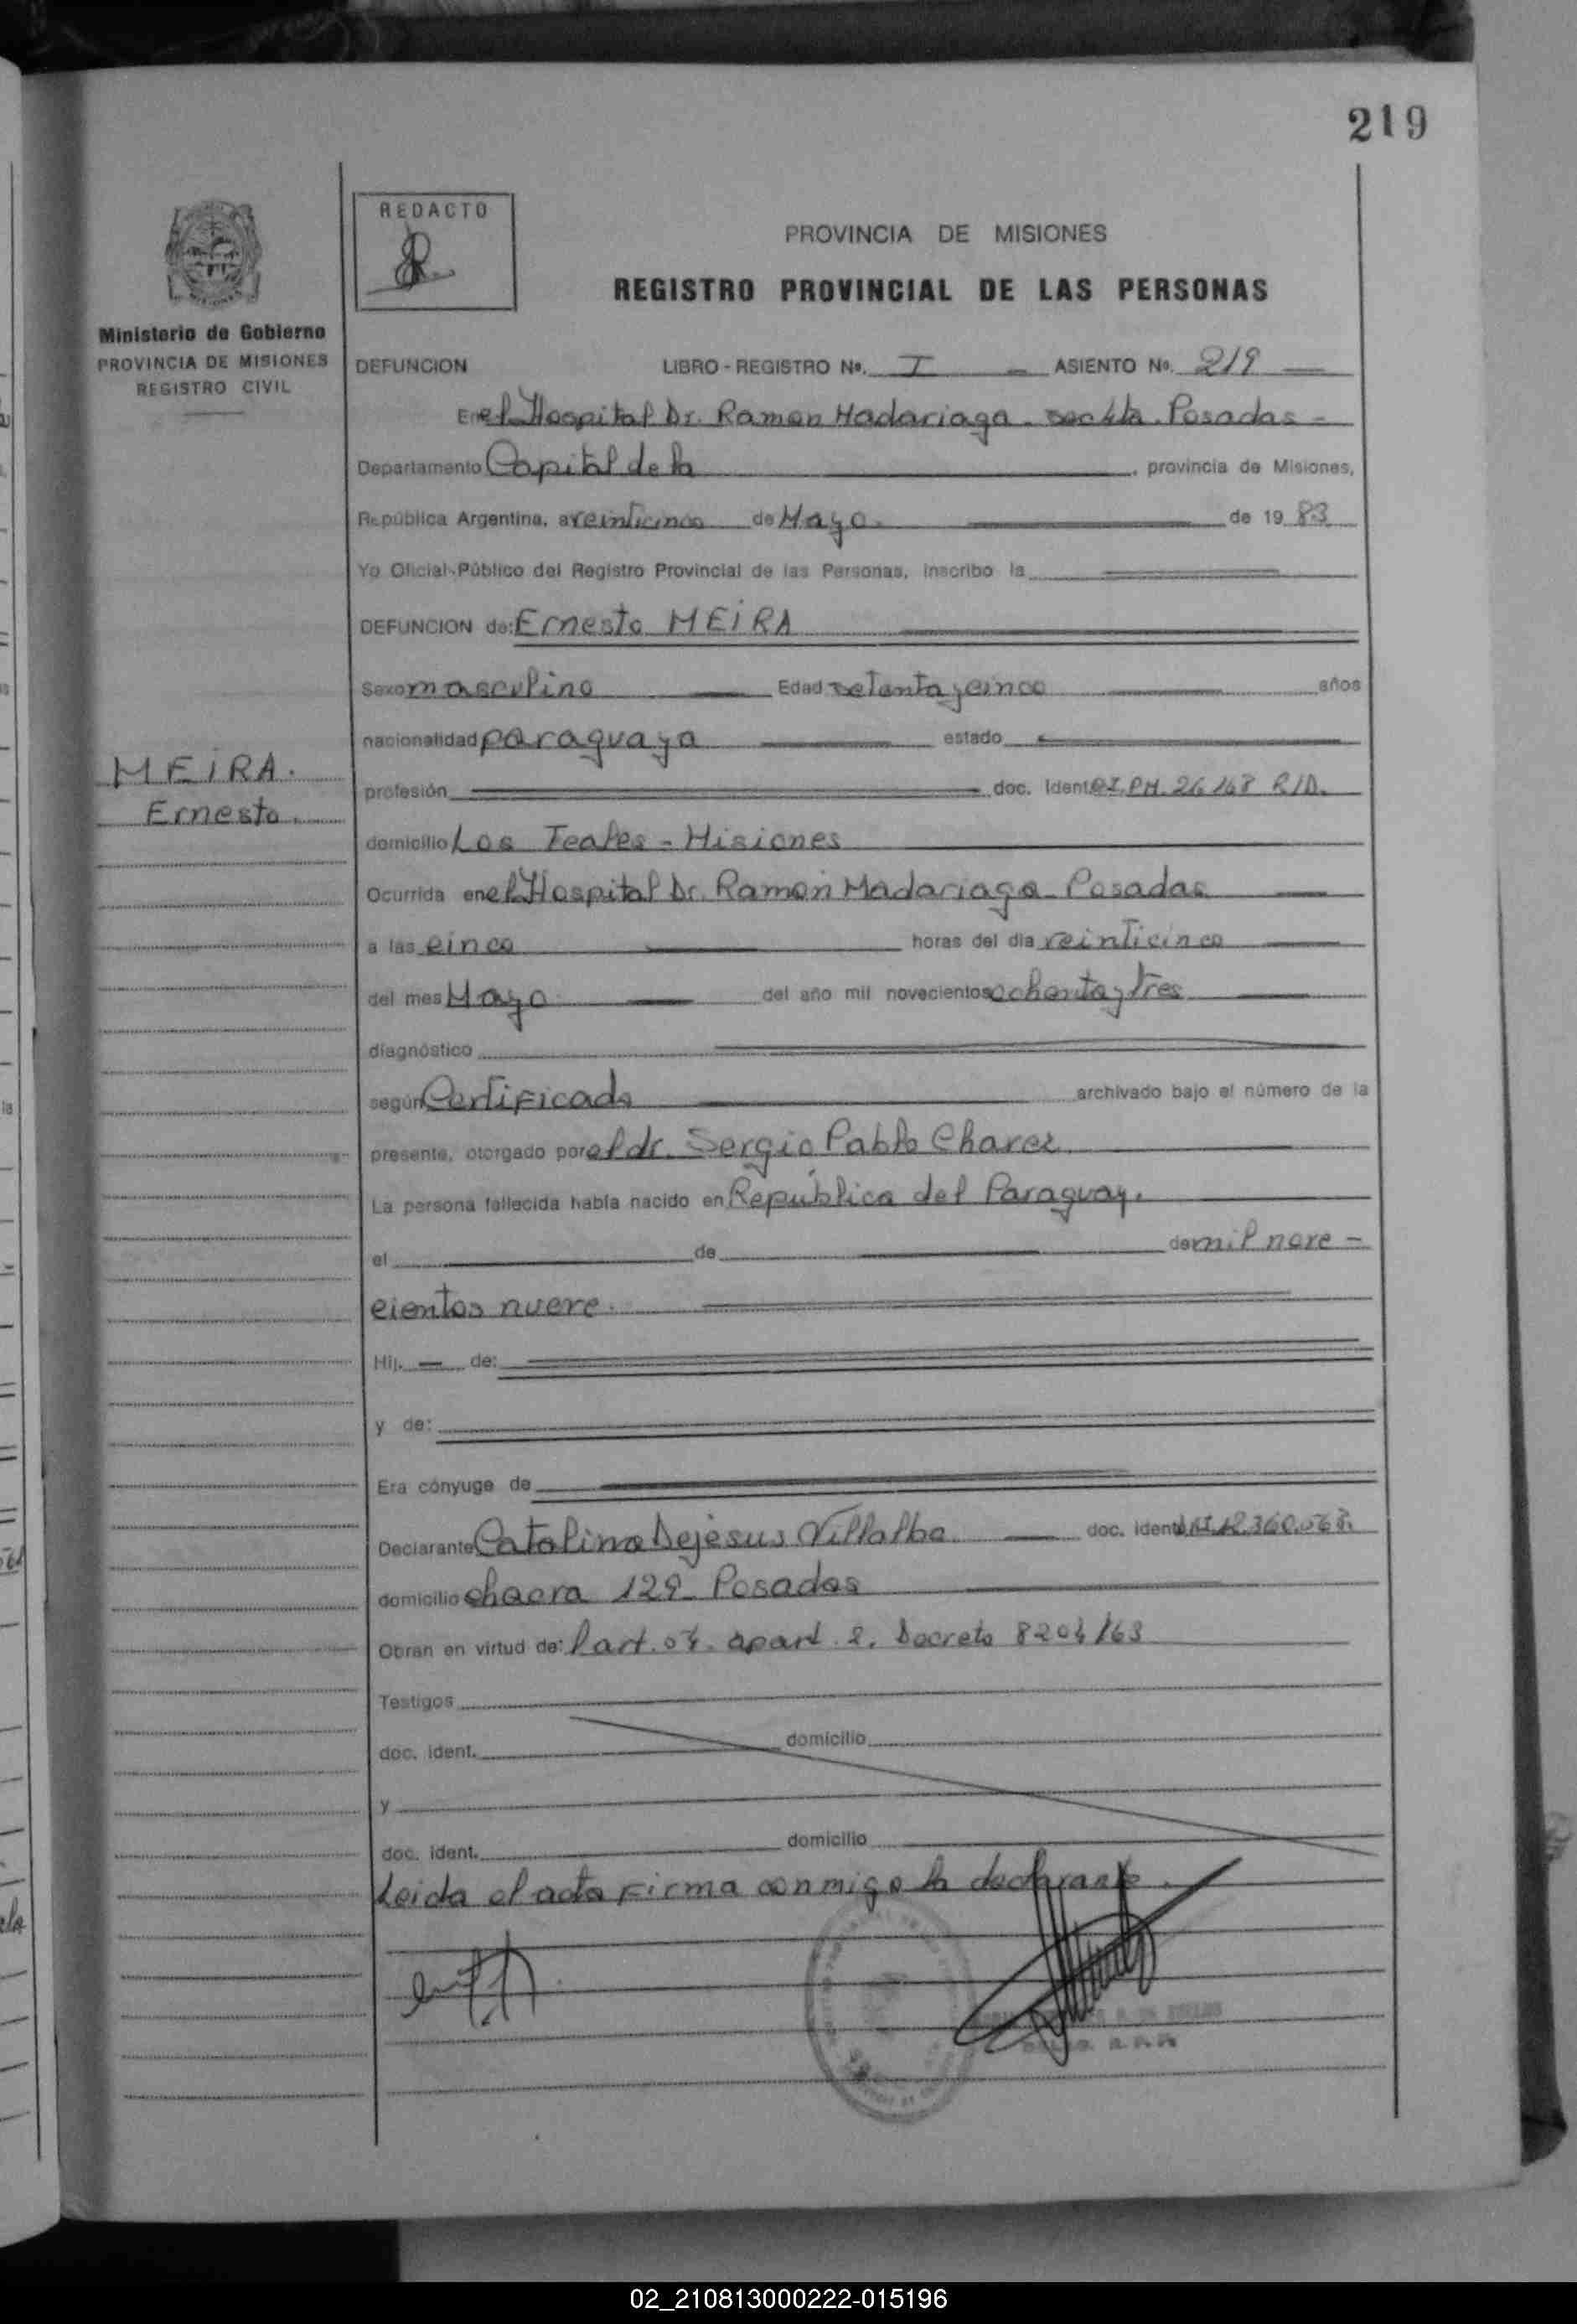 219
REDACTO
PROVINCIA DE MISIONES
REGISTRO PROVINCIAL DE LAS PERSONAS
Ministerio de Gobierno
PROVINCIA DE MISIONES
REGISTRO CIVIL
DEFUNCION LIBRO - REGISTRO Nº. I ASIENTO Nº. 219
En el Hospital Dr. Ramon Madariaga. Posadas -
Departamento Capital de la , provincia de Misiones,
República Argentina, a veinticinco de Mayo. de 19 83
Yo Oficial Público del Registro Provincial de las Personas, inscribo la
DEFUNCION de: Ernesto MEiRA
Sexo masculino Edad setenta y cinco años
nacionalidad paraguaya estado
MEiRA.
Ernesto.
profesión doc. Ident. CI. PM. 26168 R/D.
domicilio Los Teales - Misiones
Ocurrida en el Hospital Dr. Ramon Madariaga - Posadas
a las cinco horas del día veinticinco
del mes Mayo del año mil novecientos ochenta y tres
diagnóstico
según Certificado archivado bajo el número de la
presente, otorgado por el dr. Sergio Pablo Chavez
La persona fallecida había nacido en República del Paraguay.
el de de mil nove -
cientos nueve.
Hij. de:
y de:
Era cónyuge de
Declarante Catalina Dejesus Villalba doc. ident. 12.360.068.
domicilio chacra 129 - Posadas
Obran en virtud de: l'art. apart. 2. Decreto 8204/63
Testigos
doc. ident. domicilio
y
doc. ident. domicilio
Leida el acta Firma conmigo la declarante.
02_210813000222-015196